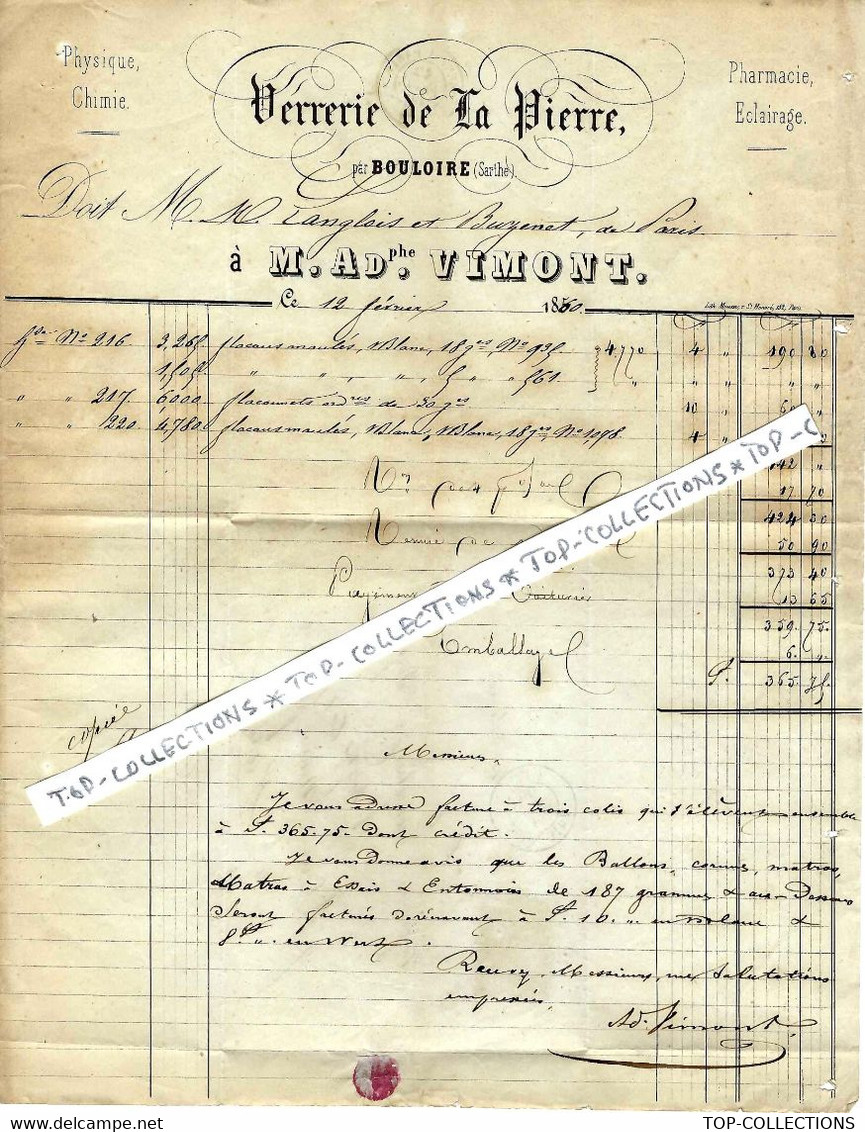 Physique,
Chimie.
Pharmacie,
Eclairage.
Verrerie de La Pierre,
par BOULOIRE (Sarthe).
Doit M. M. Langlois et Buzenet, de Paris
à M. ADphe. VIMONT.
Ce 12 février 1860.
Lith. r. St Honoré, Paris
No 216 3,265 flacons moulés, Blanc, 18 No 935 4,770 4 " 190 80
1,505 " " " " " 561 " " " "
" " 217 6000 flaconnets ordres de 30 10 60
" " 220 4,780 flacons moulés, Blanc, Blanc, 18 No 1078 4 "
442 "
17 70
424 30
Remise 50 90
373 40
13 65
359. 75.
Emballage 6. "
f. 365. 75
copiée
TOP-COLLECTIONS * TOP-COLLECTIONS * TOP-COLLECTIONS * TOP-COLLECTIONS * TOP-C
Messieurs,
Je vous adresse facture à trois colis qui s'élèvent ensemble
à f. 365.75. Dont crédit.
Je vous donne avis que les Ballons, cornues, matras,
Matras à Essais & Entonnoirs de 187 grammes & au-Dessous
Seront facturés dorénavant à f. 10. " en Blanc &
8 f. " en Vert.
Recevez, Messieurs, mes Salutations
empressées,
Ad. Vimont
TOP-COLLECTIONS
delcampe.net
TOP-COLLECTIONS